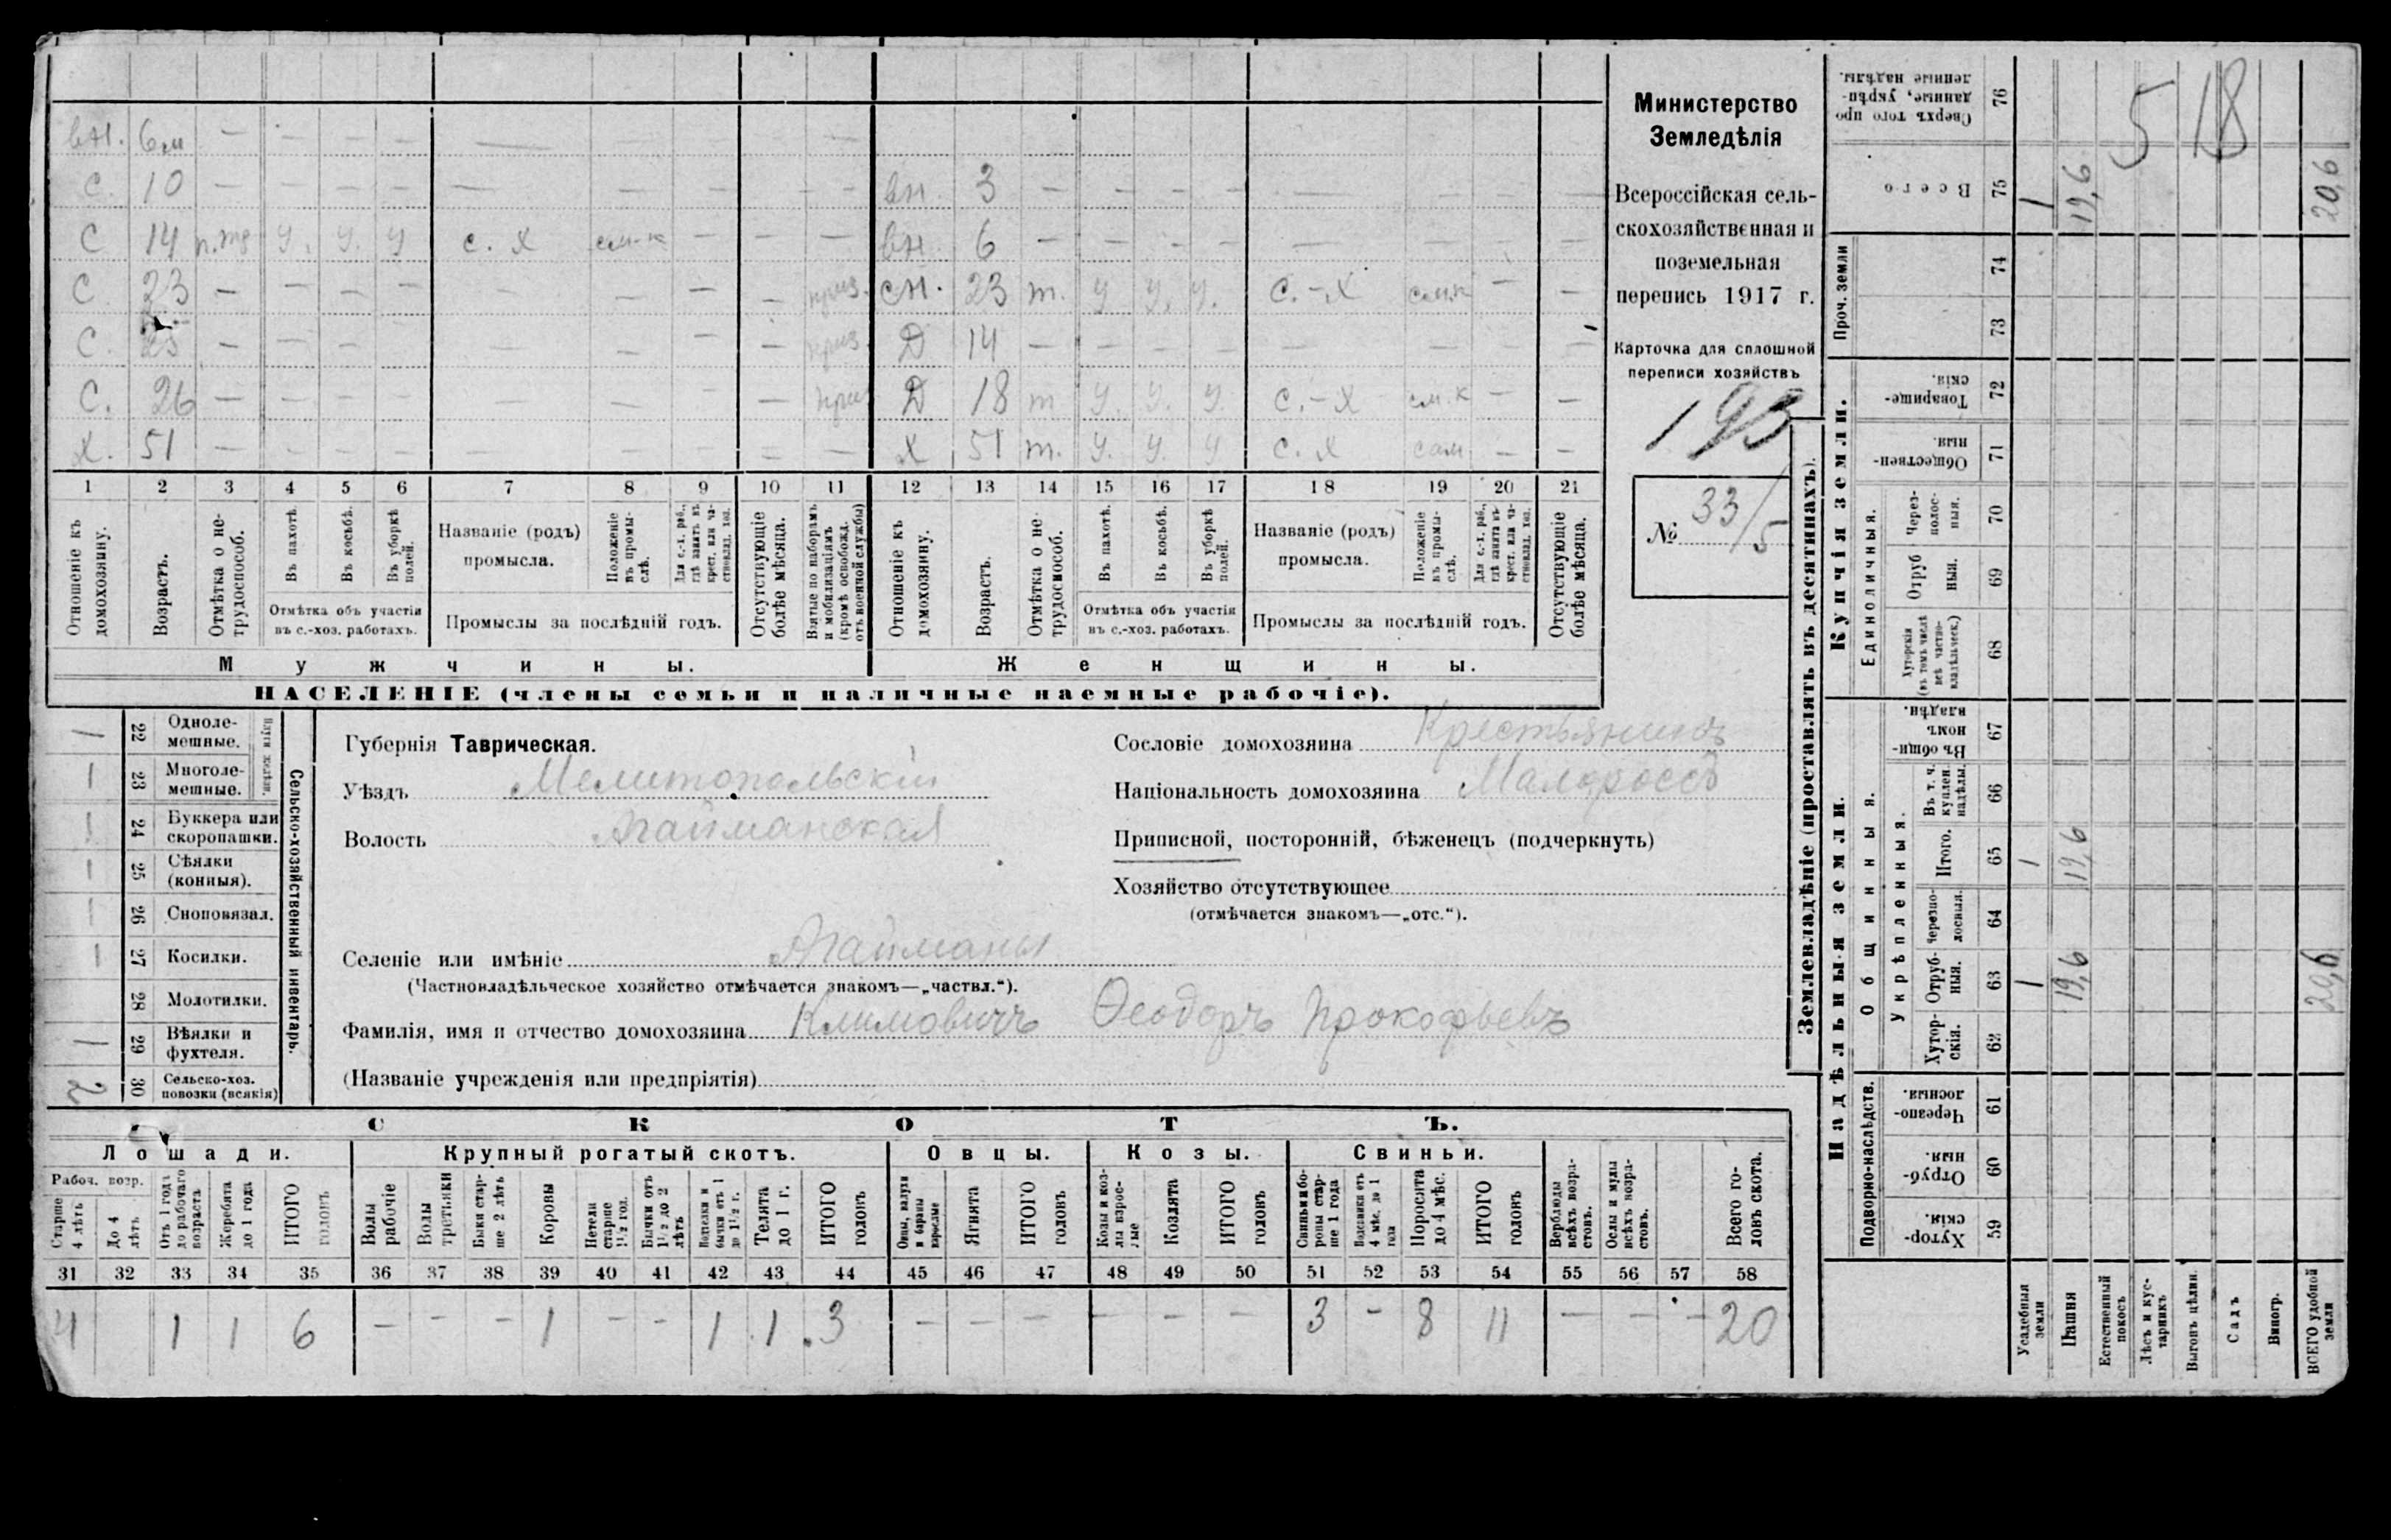 вн. 6м — — — — — — — — —
С. 10 — — — — — — — — — вн. 3 — — — — — — — —
С 14 п.тр у. у. у с. х см.к — — — вн 6 — — — — — — — —
С 23 — — — — — — — — приз. сн. 23 т. у у. у. с.-х см.к — —
С. 25 — — — — — — — — приз. Д 14 — — — — — — — —
С. 26 — — — — — — — — приз Д 18 т у. у. у. с.-х см.к — —
Х. 51 — — — — — — — — — Х 51 т. у. у. у с. х сам — —
1 2 3 4 5 6 7 8 9 10 11 12 13 14 15 16 17 18 19 20 21
Отношеніе къ домохозяину.
Возрастъ.
Отмѣтка о не-трудоспособ.
Въ пахотѣ.
Въ косьбѣ.
Въ уборкѣ полей.
Отмѣтка объ участіи
въ с.-хоз. работахъ.
Названіе (родъ)
промысла.
Положеніе въ промы-слѣ.
Для с.-х. раб., гдѣ занятъ въ крест. или ча-стновлад. хоз.
Промыслы за послѣдній годъ.
Отсутствующіе болѣе мѣсяца.
Взятые по наборамъ и мобилизаціямъ (кромѣ освобожд. отъ военной службы)
Отношеніе къ домохозяину.
Возрастъ.
Отмѣтка о не-трудоспособ.
Въ пахотѣ.
Въ косьбѣ.
Въ уборкѣ полей.
Отмѣтка объ участіи
въ с.-хоз. работахъ.
Названіе (родъ)
промысла.
Положеніе въ промы-слѣ.
Для с.-х. раб., гдѣ занятъ въ крест. или ча-стновлад. хоз.
Промыслы за послѣдній годъ.
Отсутствующіе болѣе мѣсяца.
Мужчины. Женщины.
НАСЕЛЕНІЕ (члены семьи и наличные наемные рабочіе).
Министерство
Земледѣлія
Всероссійская сель-
скохозяйственная и
поземельная
перепись 1917 г.
Карточка для сплошной
переписи хозяйствъ
193
№ 33/5
Сельско-хозяйственный инвентарь.
Плуги желѣзн.
1 22 Одноле-мешные.
1 23 Многоле-мешные.
1 24 Буккера или скоропашки.
1 25 Сѣялки (конныя).
1 26 Сноповязал.
1 27 Косилки.
28 Молотилки.
1 29 Вѣялки и фухтеля.
2 30 Сельско-хоз. повозки (всякія)
Губернія Таврическая.
Уѣздъ Мелитопольскій
Волость Агайманская
Селеніе или имѣніе Агайманы
(Частновладѣльческое хозяйство отмѣчается знакомъ—„частвл.“).
Фамилія, имя и отчество домохозяина Климовичъ Ѳеодоръ Прокофьевъ
(Названіе учрежденія или предпріятія)
Сословіе домохозяина Крестьянинъ
Національность домохозяина Малороссъ
Приписной, посторонній, бѣженецъ (подчеркнуть)
Хозяйство отсутствующее
(отмѣчается знакомъ—„отс.“).
СКОТЪ.
Лошади. Крупный рогатый скотъ. Овцы. Козы. Свиньи.
Рабоч. возр.
Старше 4 лѣтъ
До 4 лѣтъ
Отъ 1 года до рабочаго возраста
Жеребята до 1 года
ИТОГО головъ
Волы рабочіе
Волы третьяки
Быки стар-ше 2 лѣтъ
Коровы
Нетели старше 1½ год.
Бычки отъ 1½ до 2 лѣтъ
Нетелки и бычки отъ 1 до 1½ г.
Телята до 1 г.
ИТОГО головъ
Овцы, валухи и бараны взрослые
Ягнята
ИТОГО головъ
Козы и коз-лы взрос-лые
Козлята
ИТОГО головъ
Свиньи и бо-ровы стар-ше 1 года
Подсвинки отъ 4 мѣс. до 1 года
Поросята до 4 мѣс.
ИТОГО головъ
Верблюды всѣхъ возра-стовъ.
Ослы и мулы всѣхъ возра-стовъ.
Всего го-ловъ скота.
31 32 33 34 35 36 37 38 39 40 41 42 43 44 45 46 47 48 49 50 51 52 53 54 55 56 57 58
4 1 1 6 — — — 1 — — 1 1 3 — — — — — — 3 — 8 11 — — — 20
Землевладѣніе (проставлять въ десятинахъ).
Надѣльныя земли. Купчія земли. Проч. земли
Подворно-наслѣдств. Общинныя. Единоличныя.
Укрѣпленныя.
Хутор-скія. 59
Отруб-ныя. 60
Черезпо-лосныя. 61
Хутор-скія. 62
Отруб-ныя. 63 1 19,6 20,6
Черезпо-лосныя. 64
Итого. 65 1 19,6
Въ т. ч. куплен. надѣлы. 66
Въ общин-номъ владѣн. 67
Хуторскія (въ томъ числѣ всѣ частно-владѣльческ.) 68
Отруб ныя. 69
Через-полос-ныя. 70
Обществен-ныя. 71
Товарище-скія. 72
73
74
Всего 75 1 19,6 20,6
Сверхъ того про-данные, укрѣп-ленные надѣлы. 76
5 18
Усадебныя земли
Пашня
Естественный покосъ
Лѣсъ и кус-тарникъ
Выгонъ цѣлин.
Садъ
Виногр.
ВСЕГО удобной земли